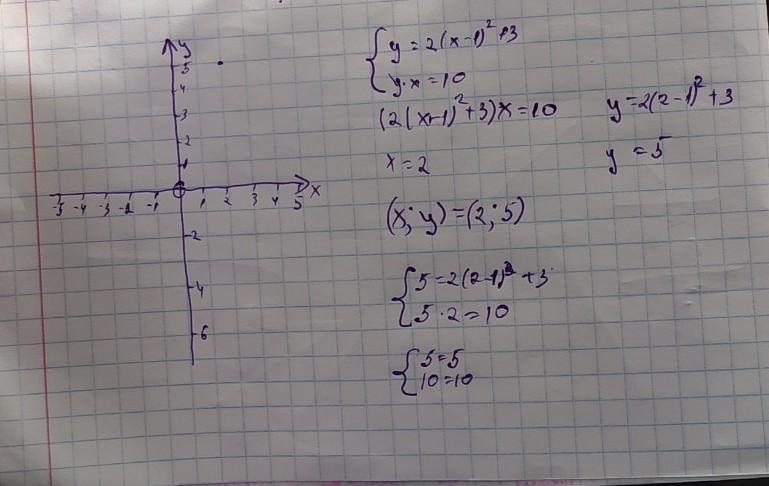 y
5
4
3
2
1
0
-5 -4 -3 -2 -1 1 2 3 4 5 x
-2
-4
-6
{ y = 2(x-1)² + 3
{ y·x = 10
(2(x-1)²+3)x = 10
x = 2
y = 2(2-1)² + 3
y = 5
(x; y) = (2; 5)
{ 5 = 2(2-1)² + 3
{ 5·2 = 10
{ 5 = 5
{ 10 = 10